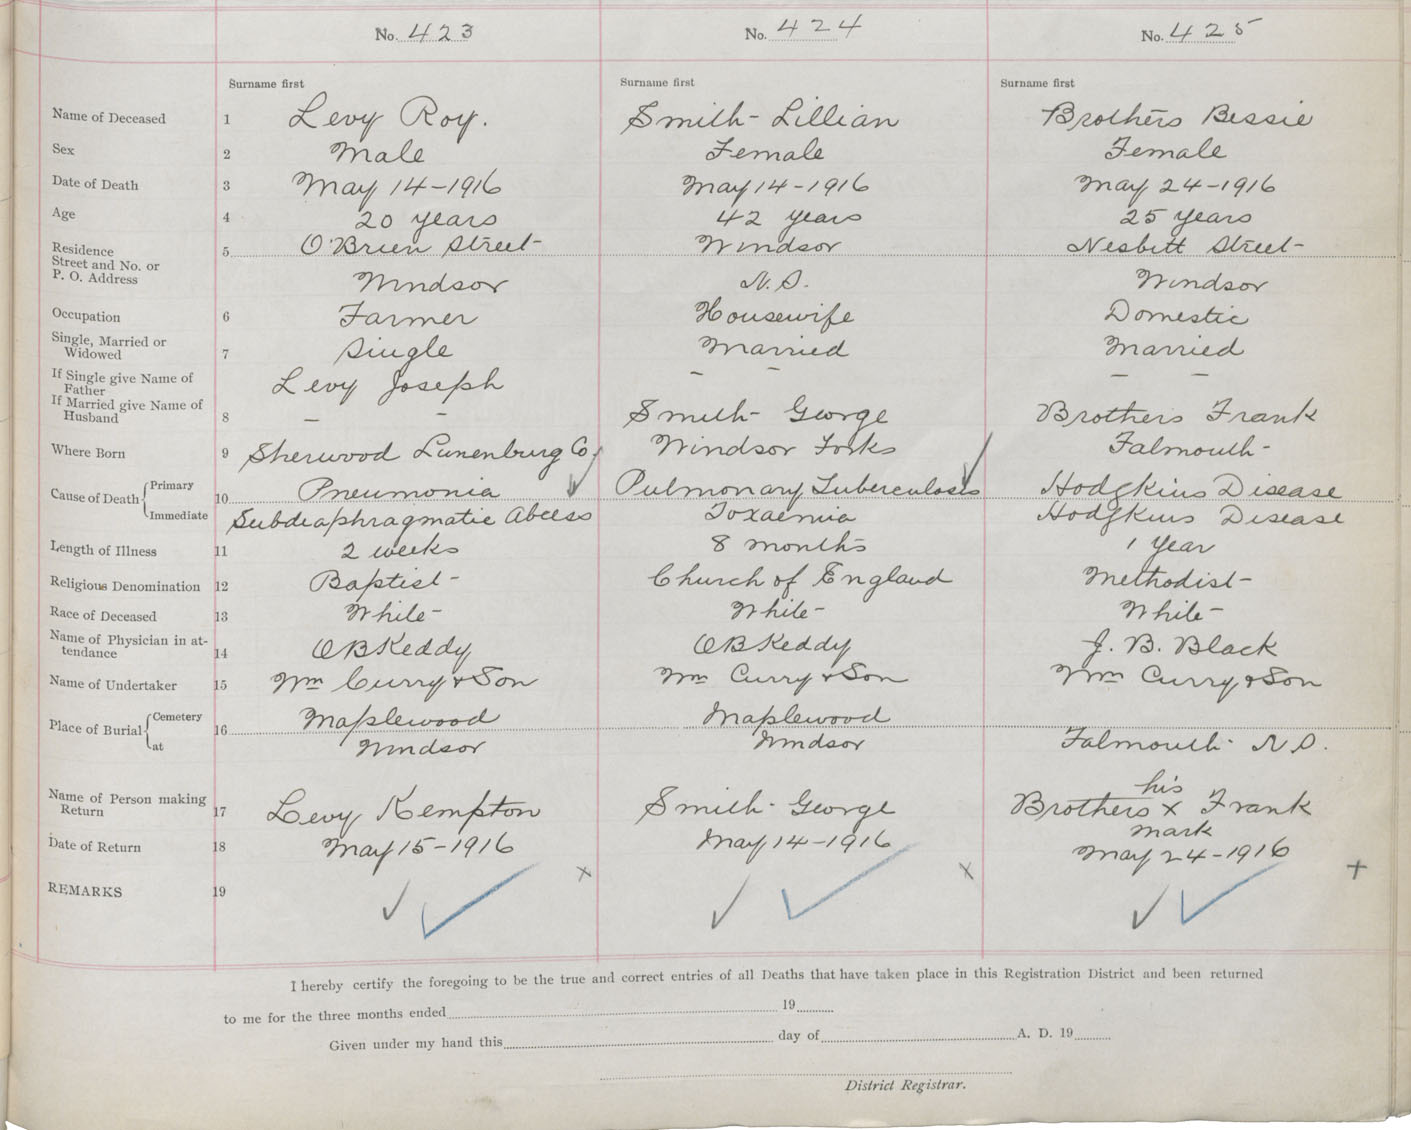 No. 423 No. 424 No. 425
Surname first Surname first Surname first
Name of Deceased 1 Levy Roy. Smith- Lillian Brothers Bessie
Sex 2 Male Female Female
Date of Death 3 May 14-1916 May 14-1916 May 24-1916
Age 4 20 years 42 years 25 years
Residence 5 O'Brien Street- Windsor Nesbitt Street-
Street and No. or
P. O. Address Windsor N.S. Windsor
Occupation 6 Farmer Housewife Domestic
Single, Married or
Widowed 7 Single Married Married
If Single give Name of
Father Levy Joseph - - - -
If Married give Name of
Husband 8 - - Smith- George Brothers Frank
Where Born 9 Sherwood Lunenburg Co. Windsor Forks Falmouth-
Cause of Death Primary 10 Pneumonia Pulmonary Tuberculosis Hodgkins Disease
Immediate Subdiaphragmatic Abcess Toxaemia Hodgkins Disease
Length of Illness 11 2 weeks 8 months 1 year
Religious Denomination 12 Baptist- Church of England Methodist-
Race of Deceased 13 White- White- White-
Name of Physician in at-
tendance 14 O B Keddy O B Keddy J. B. Black
Name of Undertaker 15 Wm Curry & Son Wm Curry & Son Wm Curry & Son
Place of Burial Cemetery 16 Maplewood Maplewood
at Windsor Windsor Falmouth- N.S.
Name of Person making his
Return 17 Levy Kempton Smith- George Brothers x Frank
mark
Date of Return 18 May 15-1916 May 14-1916 May 24-1916
REMARKS 19 x x +
I hereby certify the foregoing to be the true and correct entries of all Deaths that have taken place in this Registration District and been returned
to me for the three months ended 19
Given under my hand this day of A. D. 19
District Registrar.